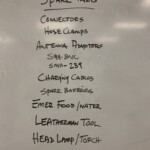 SPARE FUSES
CONNECTORS
HOSE CLAMPS
ANTENNA ADAPTERS
SMA-BNC
SMA-259
CHARGING CABLES
SPARE BATTERIES
EMER FOOD/WATER
LEATHERMAN TOOL
HEAD LAMP/TORCH